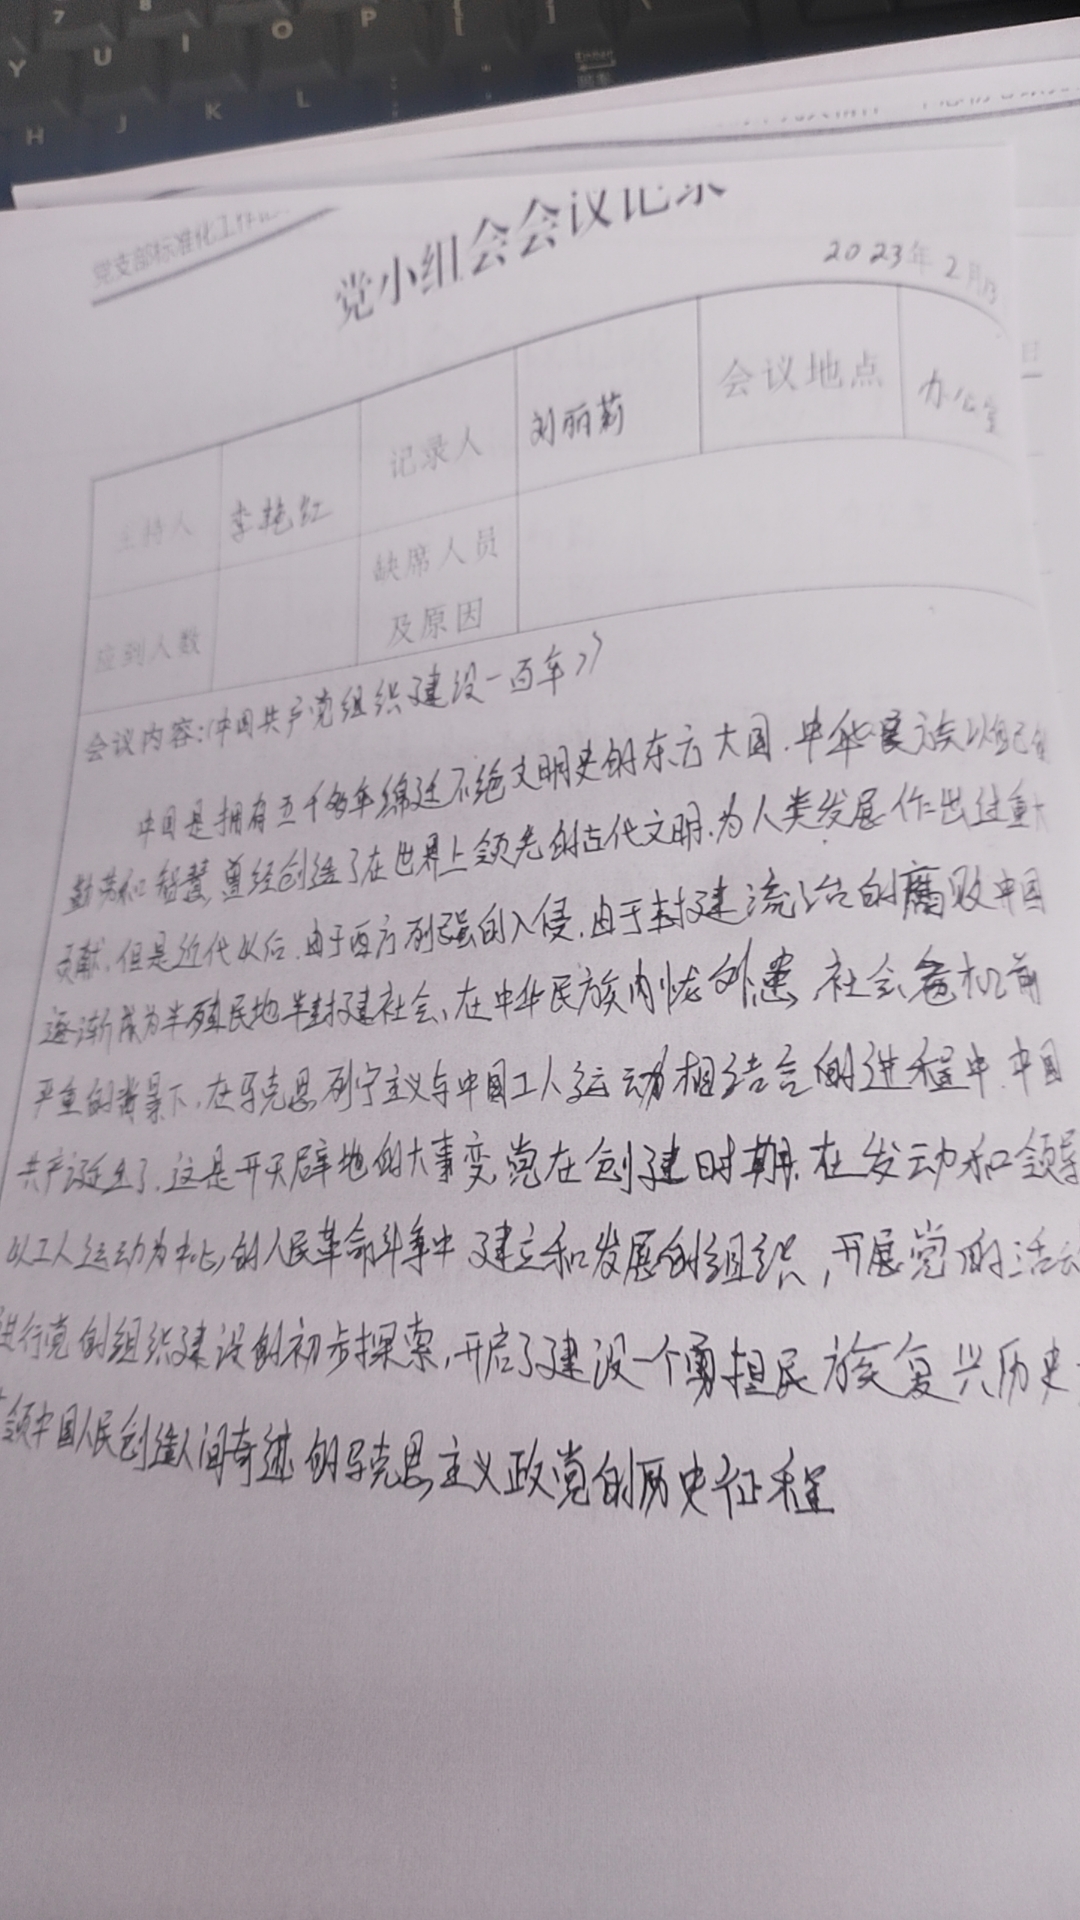 党支部标准化工作
党小组会会议记录
2023年2月13
主持人 李艳红 记录人 刘丽莉 会议地点 办公室
应到人数 缺席人员及原因
会议内容:《中国共产党组织建设一百年》
中国是拥有五千多年绵延不绝文明史的东方大国.中华民族以自己的
勤劳和智慧,曾经创造了在世界上领先的古代文明.为人类发展作出过重大
贡献.但是近代以后.由于西方列强的入侵.由于封建统治的腐败中国
逐渐成为半殖民地半封建社会,在中华民族内忧外患,社会危机前
严重的背景下.在马克思列宁主义与中国工人运动相结合的进程中.中国
共产诞生了.这是开天辟地的大事变,党在创建时期.在发动和领导
以工人运动为中心的人民革命斗争中建立和发展的组织,开展党的活动
进行党的组织建设的初步探索,开启了建设一个勇担民族复兴历史
领中国人民创造人间奇迹的马克思主义政党的历史征程
Y U I O P
H J K L